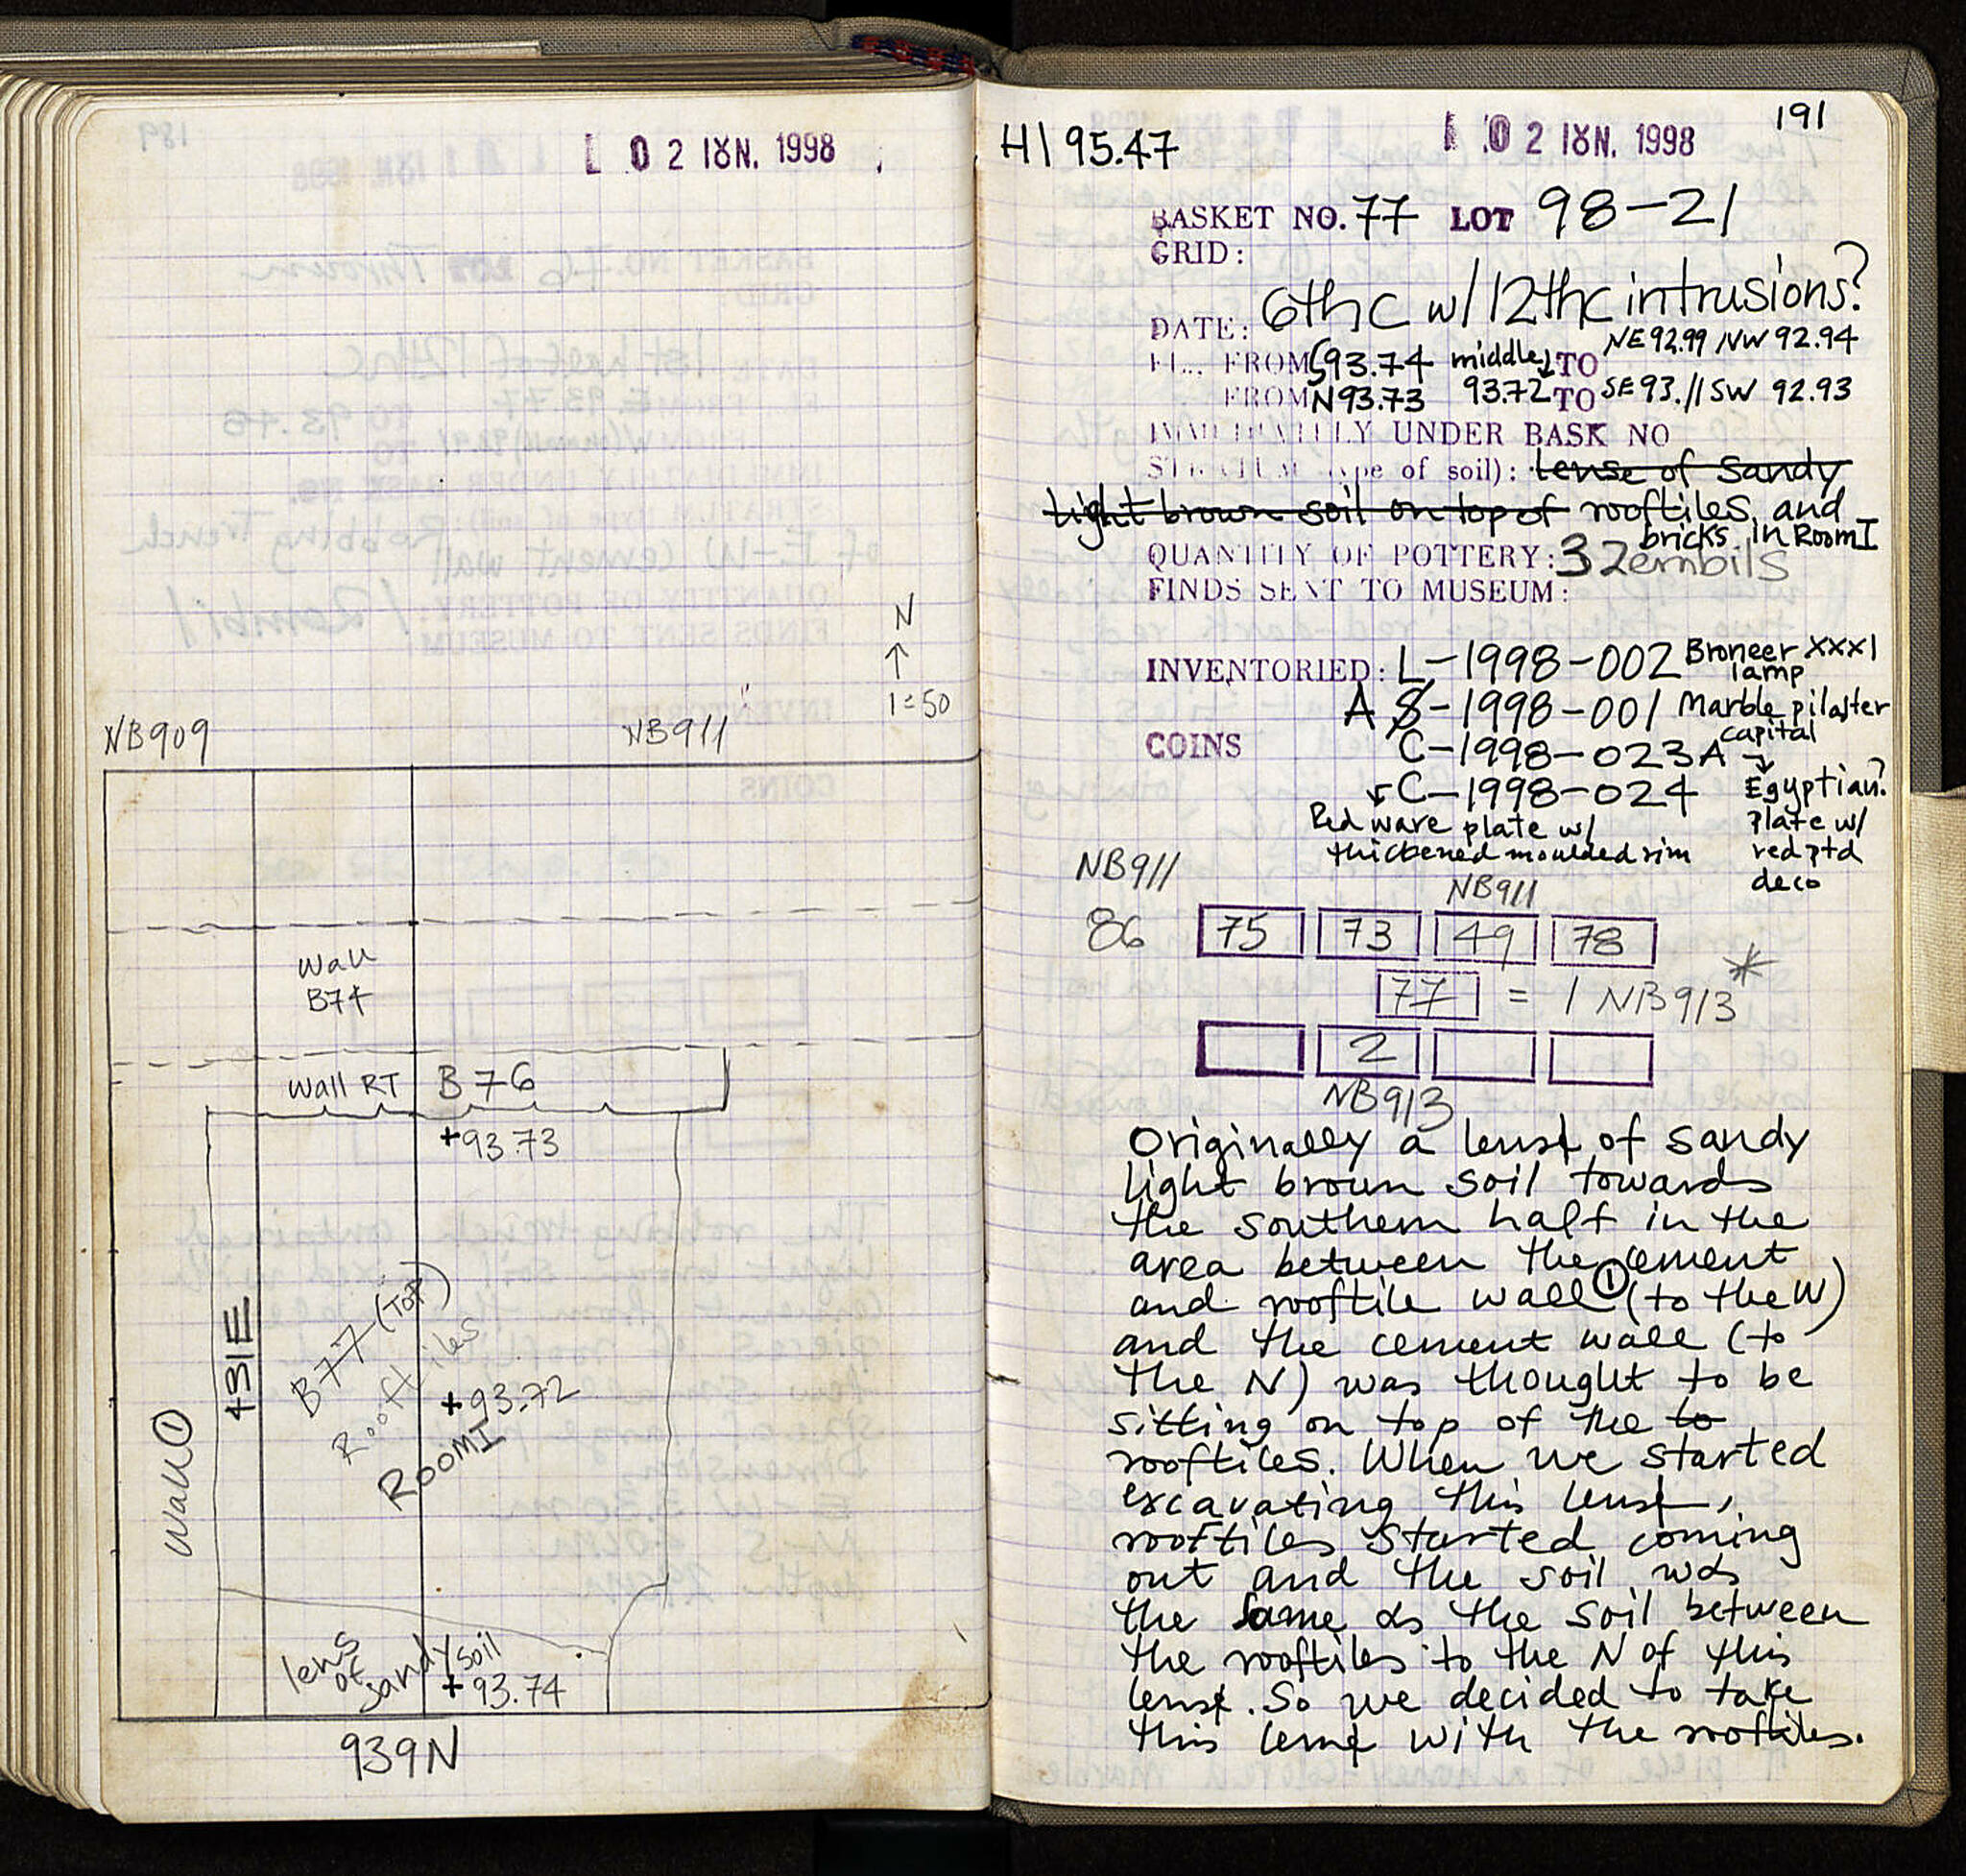 02 ΙΟΥΝ. 1998
N
↑
1=50
NB909
NB911
Wall
B74
Wall RT B76
+93.73
B77 (TOP)
Rooftiles
431E
+93.72
ROOM I
Wall ①
lens
of
sandy soil
+93.74
939N
191
HI 95.47
02 ΙΟΥΝ. 1998
BASKET NO. 77 LOT 98-21
GRID:
DATE: 6th c w/ 12th c intrusions?
EL. FROM S93.74 middle TO NE 92.99 / NW 92.94
FROM N93.73 93.72 TO SE 93.11 SW 92.93
IMMEDIATELY UNDER BASK NO
STRATUM (type of soil): lense of sandy
light brown soil on top of rooftiles and
bricks in Room I
QUANTITY OF POTTERY: 3 Zembils
FINDS SENT TO MUSEUM:
INVENTORIED: L-1998-002 Broneer XXXI
lamp
A S-1998-001 Marble pilaster
capital
COINS C-1998-023A →
C-1998-024 Egyptian?
plate w/
red ptd
deco
Red ware plate w/
thickened moulded rim
NB911
NB911
86 75 73 49 78
77 = 1 NB913 *
2
NB913
Originally a lens of sandy
light brown soil towards
the southern half in the
area between the cement
and rooftile wall ① (to the W)
and the cement wall (to
the N) was thought to be
sitting on top of the to
rooftiles. When we started
excavating this lens,
rooftiles started coming
out and the soil was
the same as the soil between
the rooftiles to the N of this
lens. So we decided to take
this lens with the rooftiles.